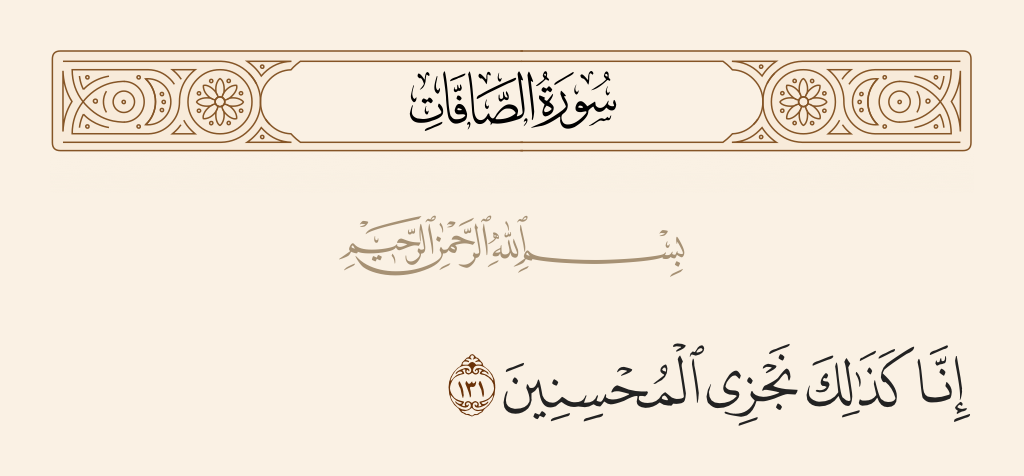 سُورَةُ الصَّافَّاتِ
بِسْمِ ٱللَّهِ ٱلرَّحْمَٰنِ ٱلرَّحِيمِ
إِنَّا كَذَٰلِكَ نَجْزِى ٱلْمُحْسِنِينَ ١٣١